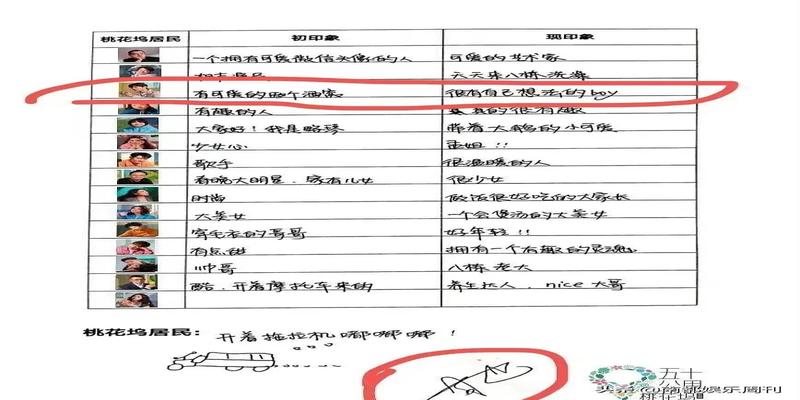 桃花坞居民 初印象 现印象
一个拥有可爱微信头像的人 可爱的艺术家
天天来八栋洗澡
有可爱的四个酒窝 很有自己想法的boy
有趣的人 真的很有趣
大家好！我是 带着大鹅的小可爱
少女心 孟姐！！
歌手 很温暖的人
春晚大明星、家有儿女 很少女
时尚 做饭很好吃的大家长
大美女 一个会煲汤的大美女
穿毛衣的哥哥 好年轻！！
有点甜 拥有一个有趣的灵魂
帅哥 八栋老大
酷、开着摩托车来的 养生达人、nice大哥
桃花坞居民： 开着拖拉机嘟嘟嘟！
五十公里桃花坞
头条@南都娱乐周刊